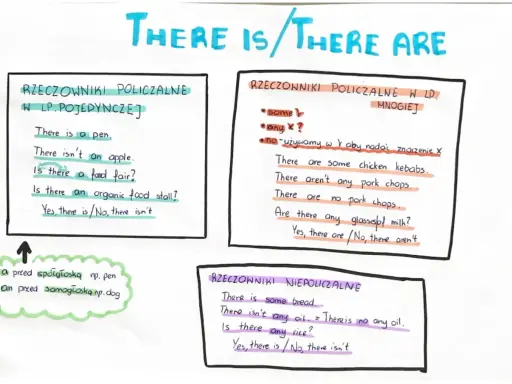 THERE IS/THERE ARE
RZECZOWNIKI POLICZALNE
W LP. POJEDYNCZEJ
There is a pen.
There isn't an apple.
Is there a food fair?
Is there an organic food stall?
Yes, there is/No, there isn't
a przed spółgłoską np. pen
an przed samogłoską np. dog
RZECZOWNIKI POLICZALNE W LD.
MNOGIEJ
• some Y
• any x ?
• no - używamy w Y aby nadać znaczenie x
There are some chicken kebabs.
There aren't any pork chops.
There are no pork chops.
Are there any glasses of milk?
Yes, there are/No, there aren't.
RZECZOWNIKI NIEPOLICZALNE
There is some bread.
There isn't any oil. = There is no any oil.
Is there any rice?
Yes, there is/No, there isn't